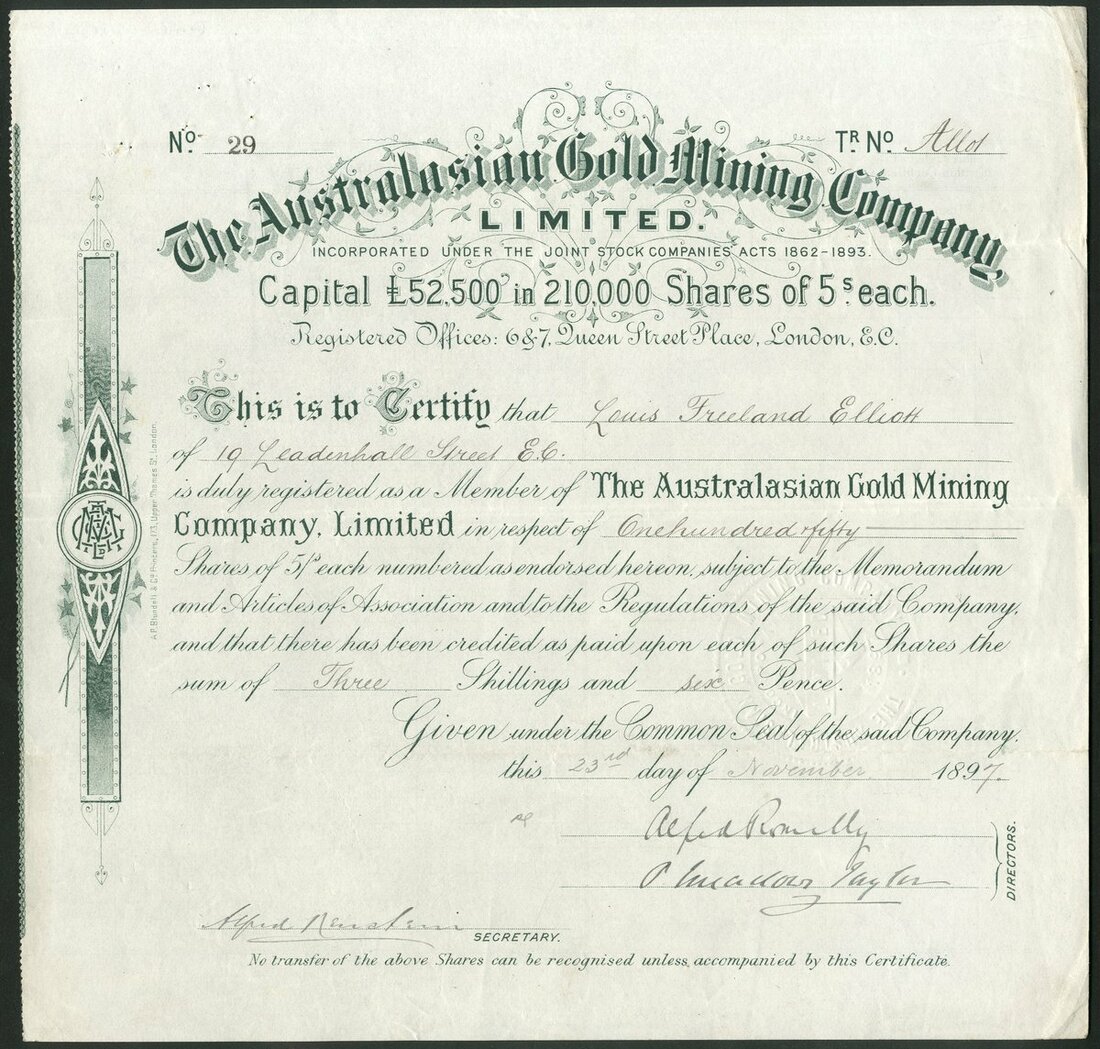 No. 29
TR No. Allot
The Australasian Gold Mining Company
LIMITED.
INCORPORATED UNDER THE JOINT STOCK COMPANIES' ACTS 1862-1893.
Capital £52,500 in 210,000 Shares of 5s each.
Registered Offices: 6&7, Queen Street Place, London, E.C.
This is to Certify that Louis Freeland Elliott
of 19 Leadenhall Street E.C.
is duly registered as a Member of The Australasian Gold Mining
Company, Limited in respect of One hundred fifty
Shares of 5/- each numbered as endorsed hereon, subject to the Memorandum
and Articles of Association and to the Regulations of the said Company,
and that there has been credited as paid upon each of such Shares the
sum of Three Shillings and six Pence.
Given under the Common Seal of the said Company,
this 23rd day of November 1897.
Alfred Romilly
P Meadows Taylor
DIRECTORS.
Alfred
SECRETARY.
No transfer of the above Shares can be recognised unless accompanied by this Certificate.
A.P. Blundell & Co. Printers, 173, Upper Thames St. London.